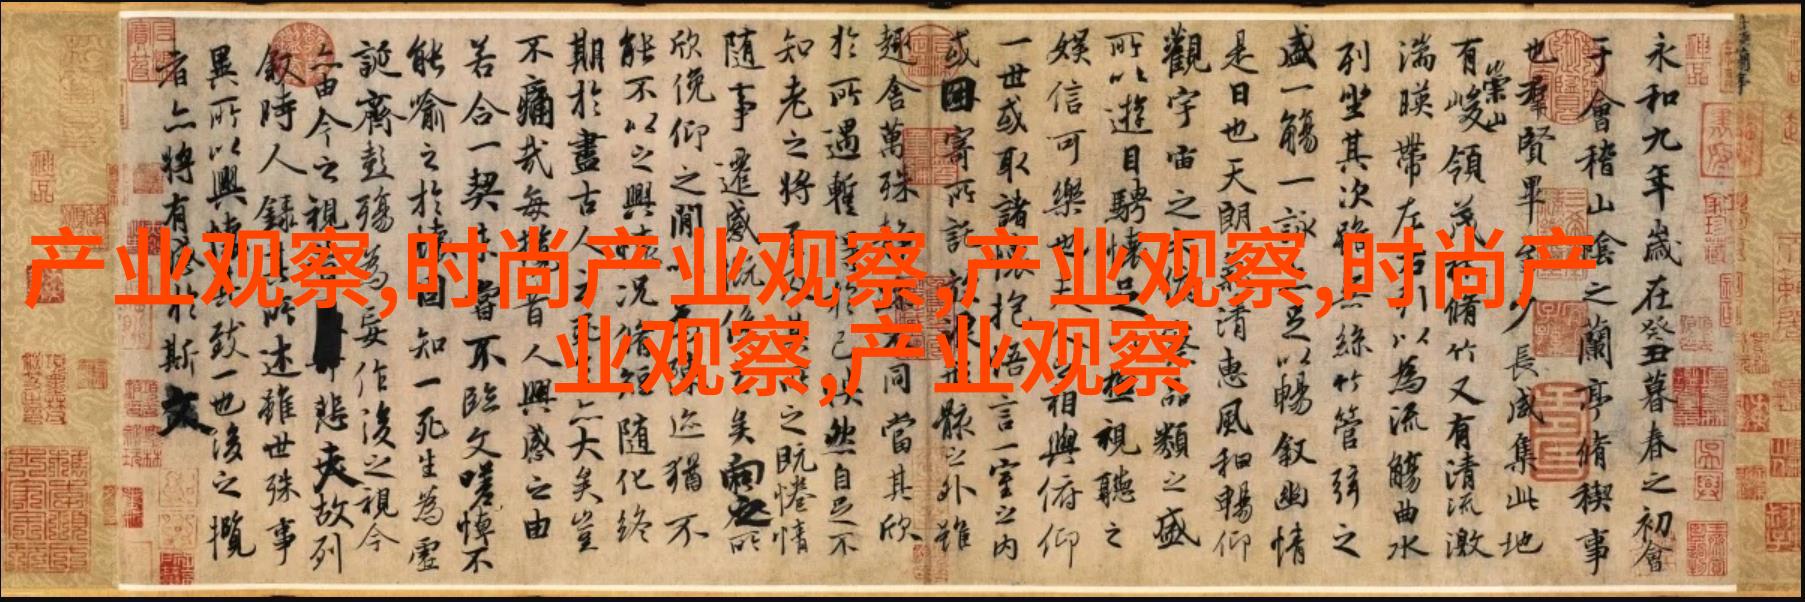 产业观察,时尚产业观察,产业观察,时尚产
业观察,产业观察
永和九年歲在癸丑暮春之初會
于會稽山陰之蘭亭脩稧事
也群賢畢至少長咸集此地
有崇山峻領茂林脩竹又有清流激
湍暎帶左右引以為流觴曲水
列坐其次雖無絲竹管弦之
盛一觴一詠亦足以暢叙幽情
是日也天朗氣清惠風和暢仰
觀宇宙之大俯察品類之盛
所以遊目騁懷足以極視聽之
娛信可樂也夫人之相與俯仰
一世或取諸懷抱悟言一室之內
或因寄所託放浪形骸之外雖
趣舍萬殊靜躁不同當其欣
於所遇蹔得於己怏然自足不
知老之將至及其所之既惓情
隨事遷感慨係之矣向之所
欣俛仰之閒以為陳迹猶不
能不以之興懷況脩短隨化終
期於盡古人云死生亦大矣豈
不痛哉每攬昔人興感之由
若合一契未嘗不臨文嗟悼不
能喻之於懷固知一死生為虛
誕齊彭殤為妄作後之視今
亦由今之視昔悲夫故列
叙時人錄其所述雖世殊事
異所以興懷其致一也後之攬
者亦將有感於斯文